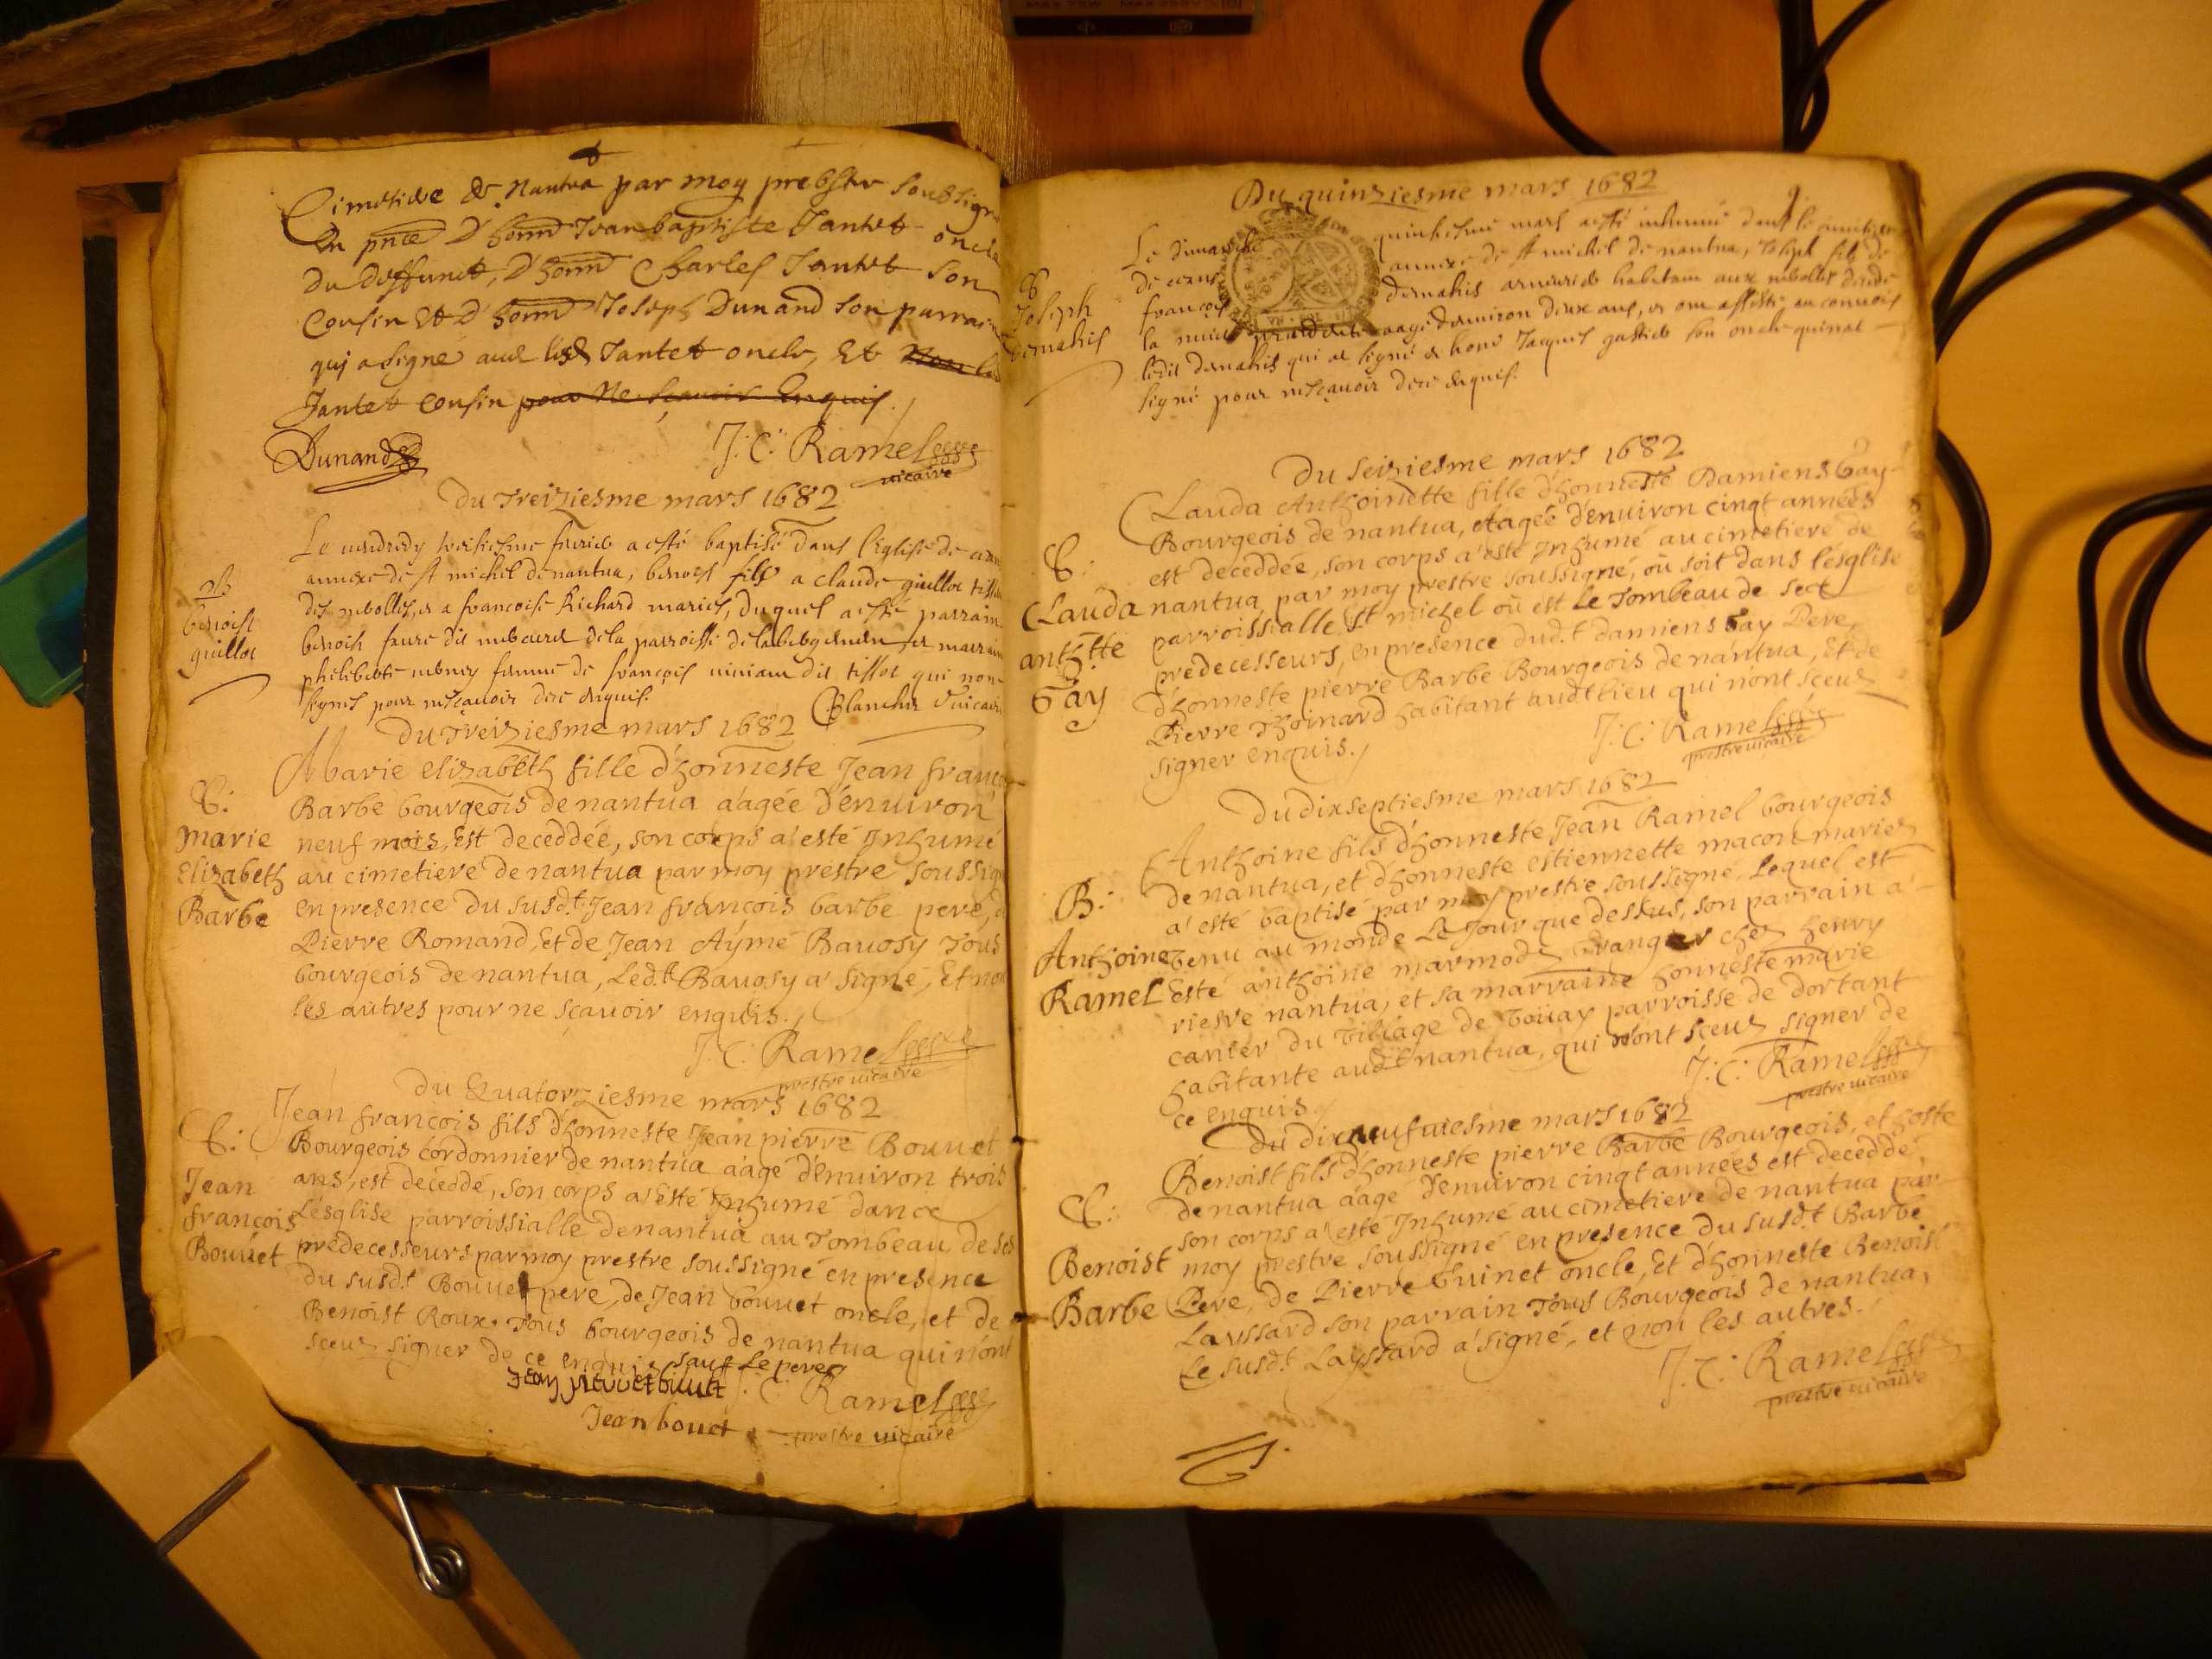 Cimetiere de Nantua par moy prebstre soubsigné
En pnce D'honn Jean baptiste Jantet oncle
du deffunct, D'honn Charles Jantet son
Cousin Et D'honn Joseph Dunand son parrain
qui a signé avec led Jantet oncle, Et non led
Jantet cousin pour Ne scavoir Enquis.
Dunand
J: C: Ramel
vicaire
Du Treiziesme mars 1682
Le vendredy a esté baptisé dans l'eglise de
annexe de st michel de nantua, benoist fils a claude guillot
des nebolles, et a francoise Richard mariés, duquel a esté parrain
benoist faure dit de la parroisse de et marraine
philiberte femme de françois dit tissot qui non
signes pour nesçavoir dece enquis.
Blanchir Vuicaire
B
benoist
guillot
du Treiziesme mars 1682
Marie elizabeth fille d'honneste Jean françois
Barbe bourgeois de nantua a'agée d'enuiron
neuf mois, Est deceddée, son corps a'esté Inhumé
au cimetiere de nantua par moy prestre soussigné
en presence du susd.t Jean françois barbe pere, de
Pierre Romand, Et de Jean Aýmé Bauosy Tous
bourgeois de nantua, Led.t Bauosy a'signé, Et non
les autres pour ne sçauoir enquis.
C:
Marie
Elizabeth
Barbe
J: C: Ramel
prestre uicaire
du Quatorziesme mars 1682
Jean françois fils d'honneste Jean pierre Bouuet
Bourgeois cordonnier de nantua a'agé d'enuiron trois
ans, est décéddé, son corps a'esté Inhumé dance
L'ésglise parroissialle de nantua au Tombeau de ses
predecesseurs par moy prestre soussigné en presence
du susd.t Bouuet pere, de Jean bouuet oncle, et de
Benoist Roux. Tous bourgeois de nantua qui n'ont
sceus signer de ce enquis sauf Le pere
C:
Jean
françois
Bouuet
J: C: Ramel
Jean bouet
prestre uicaire
Du quinziesme mars 1682
Le dimanche quinhesme mars a esté inhumé dans le
annexe de st michel de nantua, Joseph fils de
françois demahis habitant aux nebolles
la aagé denuiron deux ans, et ont assisté au convoy
ledit demahis qui a signé et honn Jacques son oncle qui n'at
signé pour nesçavoir dece enquis.
C
Joseph
demahis
Du Seiziesme mars 1682
Clauda Anthoinette fille d'honneste Damiens Gay
Bourgeois de nantua, Et agée d'enuiron cinqt années
est deceddée, son corps a'esté Inhumé au cimetiere de
nantua par moy prestre soussigné, où soit dans l'ésglise
parroissialle St michel où est Le Tombeau de ses
predecesseurs, en presence dud.t damiens Gay Pere,
d'honneste pierre Barbe Bourgeois de nantua, Et de
Pierre Thoinard habitant audt lieu qui n'ont sceus
signer enquis.
C:
Clauda
anth:tte
Gay
J: C: Ramel
prestre uicaire
Du dixseptiesme mars 1682
Anthoine fils d'honneste Jean Ramel bourgeois
de nantua, et d'honneste estiennette macon mariés
a'esté baptisé par moy prestre soussigné, Lequel est
Venu au monde Le Jour que dessus, son parrain a'
Esté anthoine marmod Granger ches henry
riesre nantua, et sa marraine honneste marie
canier du Village de Voüay parroisse de dortant
habitante audt nantua, qui n'ont sçeus signer de
ce enquis.
B:
Anthoine
Ramel
J: C: Ramel
prestre uicaire
Du dixneufuiesme mars 1682
Benoist fils d'honneste pierre Barbe Bourgeois, et hoste
de nantua a'agé d'enuiron cinqt années est deceddé,
son corps a'esté Inhumé au cimetiere de nantua par
moy prestre soussigné en presence du susd.t Barbe
Pere, de Pierre Guinet oncle, Et d'honneste Benoist
Layssard son parrain Tous Bourgeois de nantua,
Le susd.t Layssard a'signé, et non les autres.
C:
Benoist
Barbe
J: C: Ramel
prestre uicaire